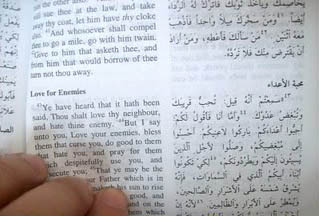 sue thee at the law, and take
thy coat, let him have thy cloke
And whosoever shall compel
to go a mile, go with him twain.
to him that asketh thee, and
from him that would borrow of thee
turn not thou away.
Love for Enemies
Ye have heard that it hath been
said, Thou shalt love thy neighbour,
and hate thine enemy. But I say
unto you, Love your enemies, bless
them that curse you, do good to them
that hate you, and pray for them
which despitefully use you, and
you; That ye may be the
your Father which is in
maketh his sun to rise
good, and
and on the
them which
يخاصمك ويأخذ ثوبك فاترك له الرداء
أيضًا. ومن سخرك ميلاً واحدًا فاذهب
معه اثنين. من سألك فأعطه، ومن أراد
أن يقترض منك فلا ترده.
محبة الأعداء
سمعتم أنه قيل: تحب قريبك
وتبغض عدوك. وأما أنا فأقول لكم:
أحبوا أعداءكم. باركوا لاعنيكم. أحسنوا
إلى مبغضيكم، وصلوا لأجل الذين
يسيئون إليكم ويطردونكم، لكي تكونوا
أبناء أبيكم الذي في السماوات، فإنه
يشرق شمسه على الأشرار والصالحين،
ويمطر على الأبرار